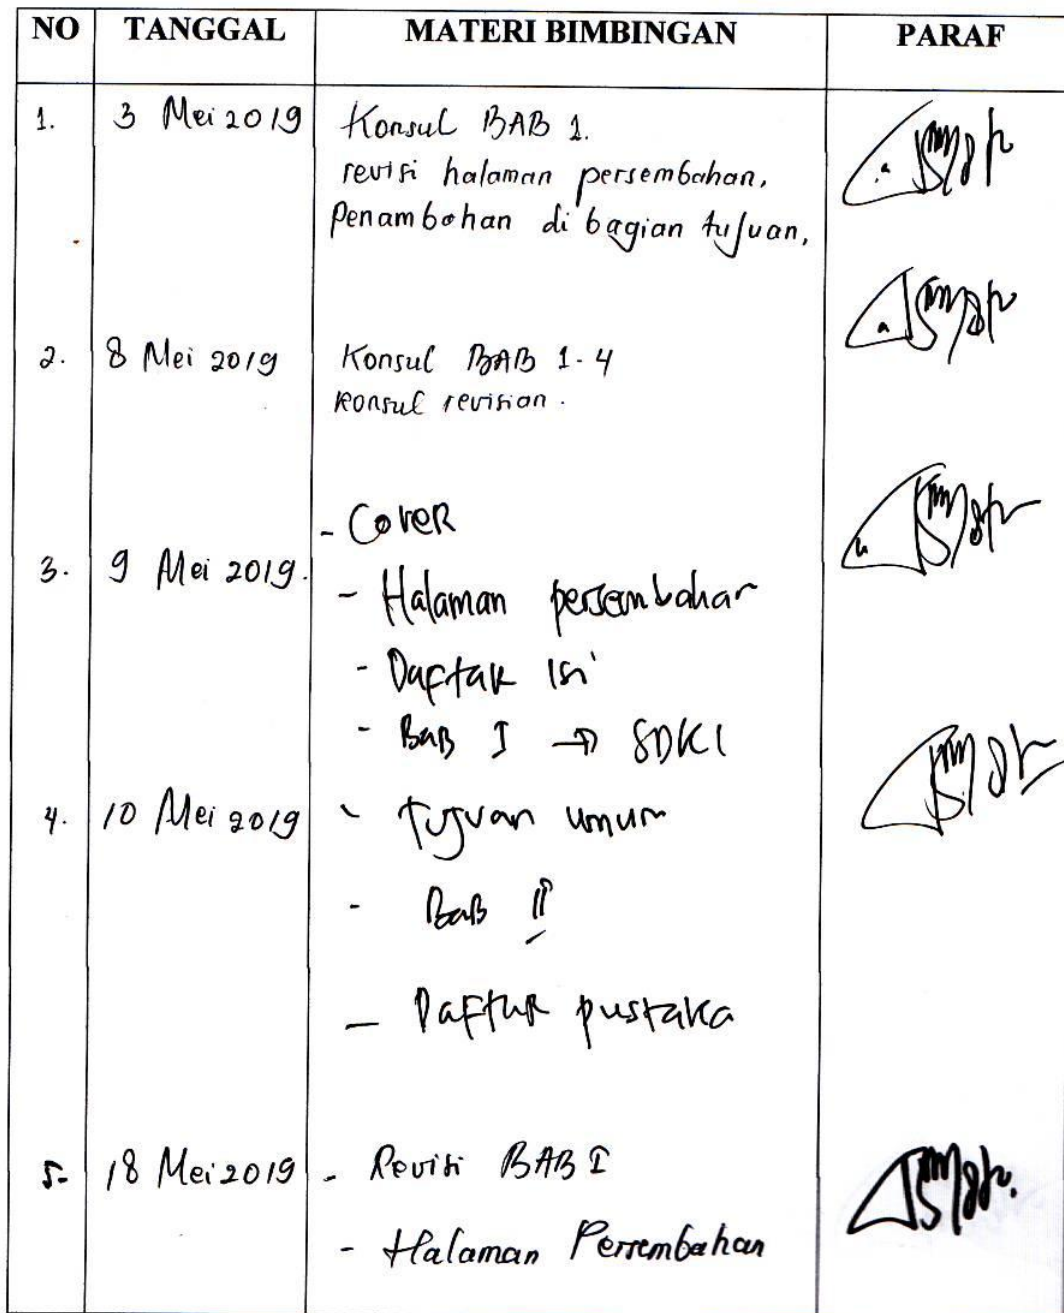 NO TANGGAL MATERI BIMBINGAN PARAF
1. 3 Mei 2019 Konsul BAB 1.
revisi halaman persembahan,
Penambahan di bagian tujuan,
2. 8 Mei 2019 Konsul BAB 1-4
konsul revisian.
- Cover
3. 9 Mei 2019.
- Halaman persembahan
- Daftar isi
- Bab I → SDKI
4. 10 Mei 2019 - Tujuan umum
- Bab II
- Daftar pustaka
5. 18 Mei 2019 - Revisi BAB I
- Halaman Persembahan